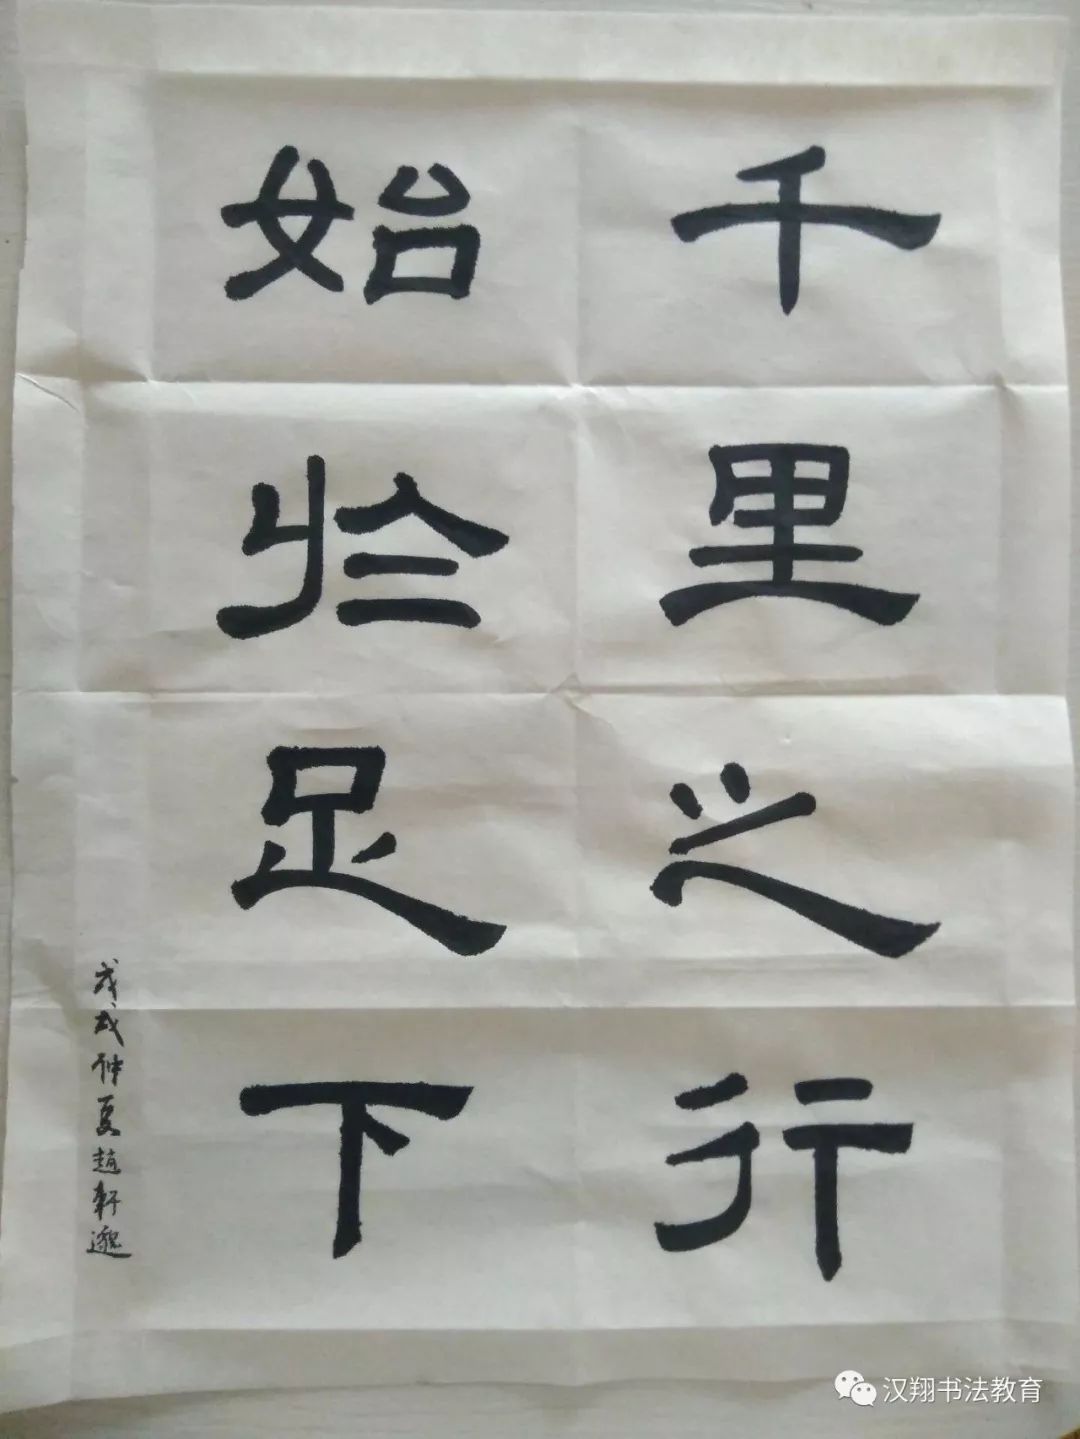 千里之行
始於足下
戊戌仲夏趙軒邈
汉翔书法教育